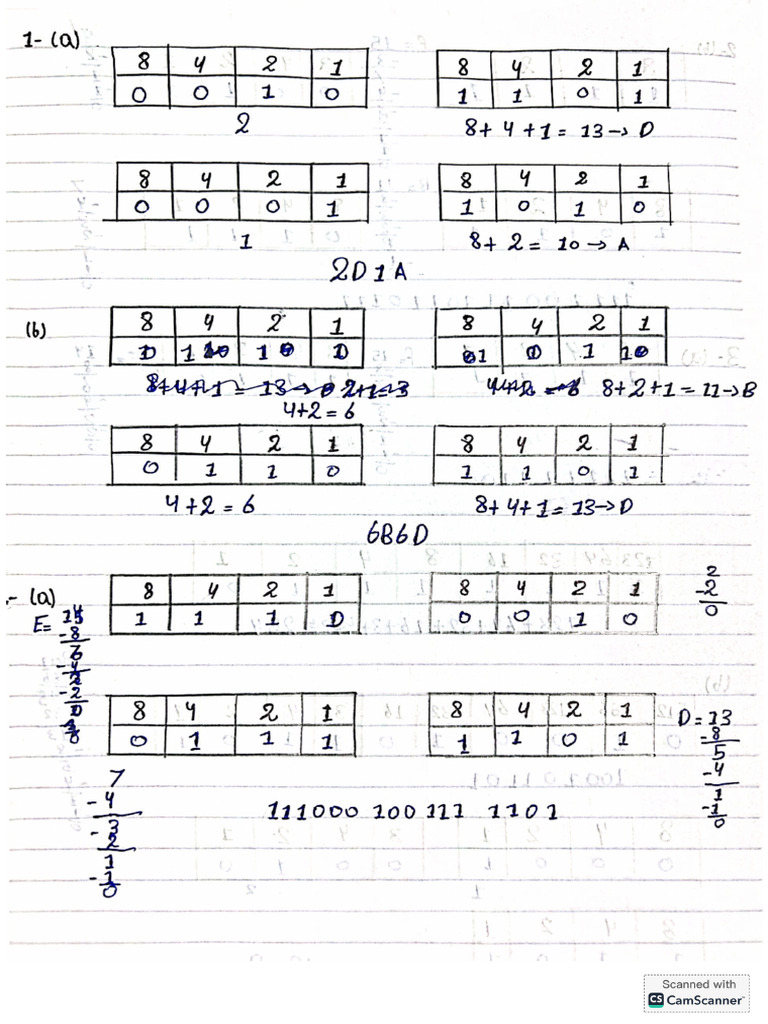 1- (a)
8 4 2 1 8 4 2 1
0 0 1 0 1 1 0 1
2 8+ 4 +1 = 13 → D
8 4 2 1 8 4 2 1
0 0 0 1 1 0 1 0
1 8+ 2 = 10 → A
2D1A
(b)
8 4 2 1 8 4 2 1
4+2 = 6 8+2+1 = 11 → B
8 4 2 1 8 4 2 1
0 1 1 0 1 1 0 1
4+2 = 6 8+ 4+1 = 13 → D
6B6D
- (a)
8 4 2 1 8 4 2 1
1 1 1 0 0 0 1 0
E=
2
-2
0
8 4 2 1 8 4 2 1
0 1 1 1 1 1 0 1
D = 13
-8
5
-4
1
-1
0
7
-4
3
-2
1
-1
0
111000 100 111 1101
Scanned with
CS CamScanner